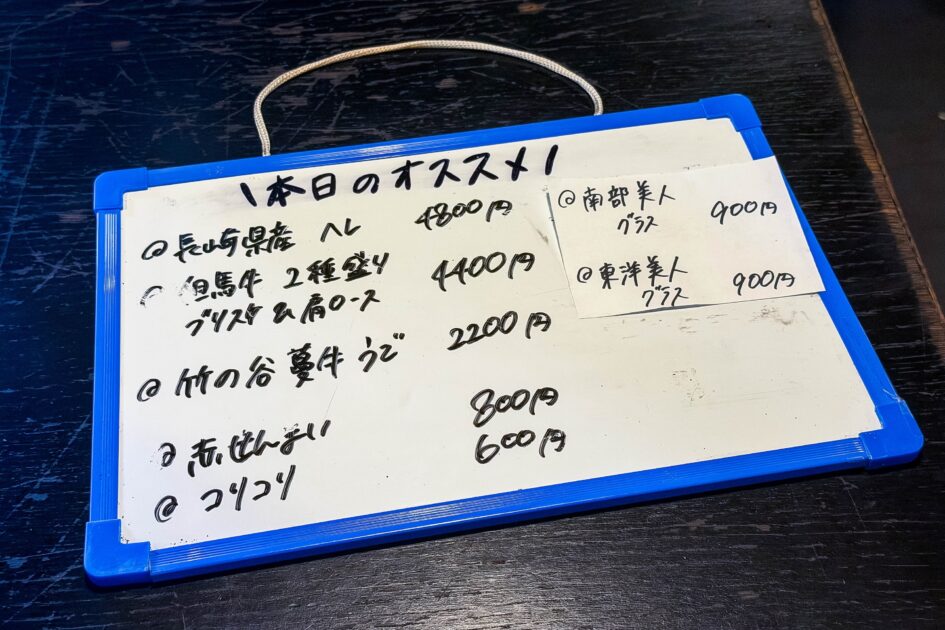 \本日のオススメ/
@長崎県産 ヘレ 4800円
@但馬牛 2種盛り 4400円
ブリスケ&肩ロース
@竹の谷蔓牛 うで 2200円
@赤せんまい 800円
@コリコリ 600円
@南部美人
グラス 900円
@東洋美人
グラス 900円